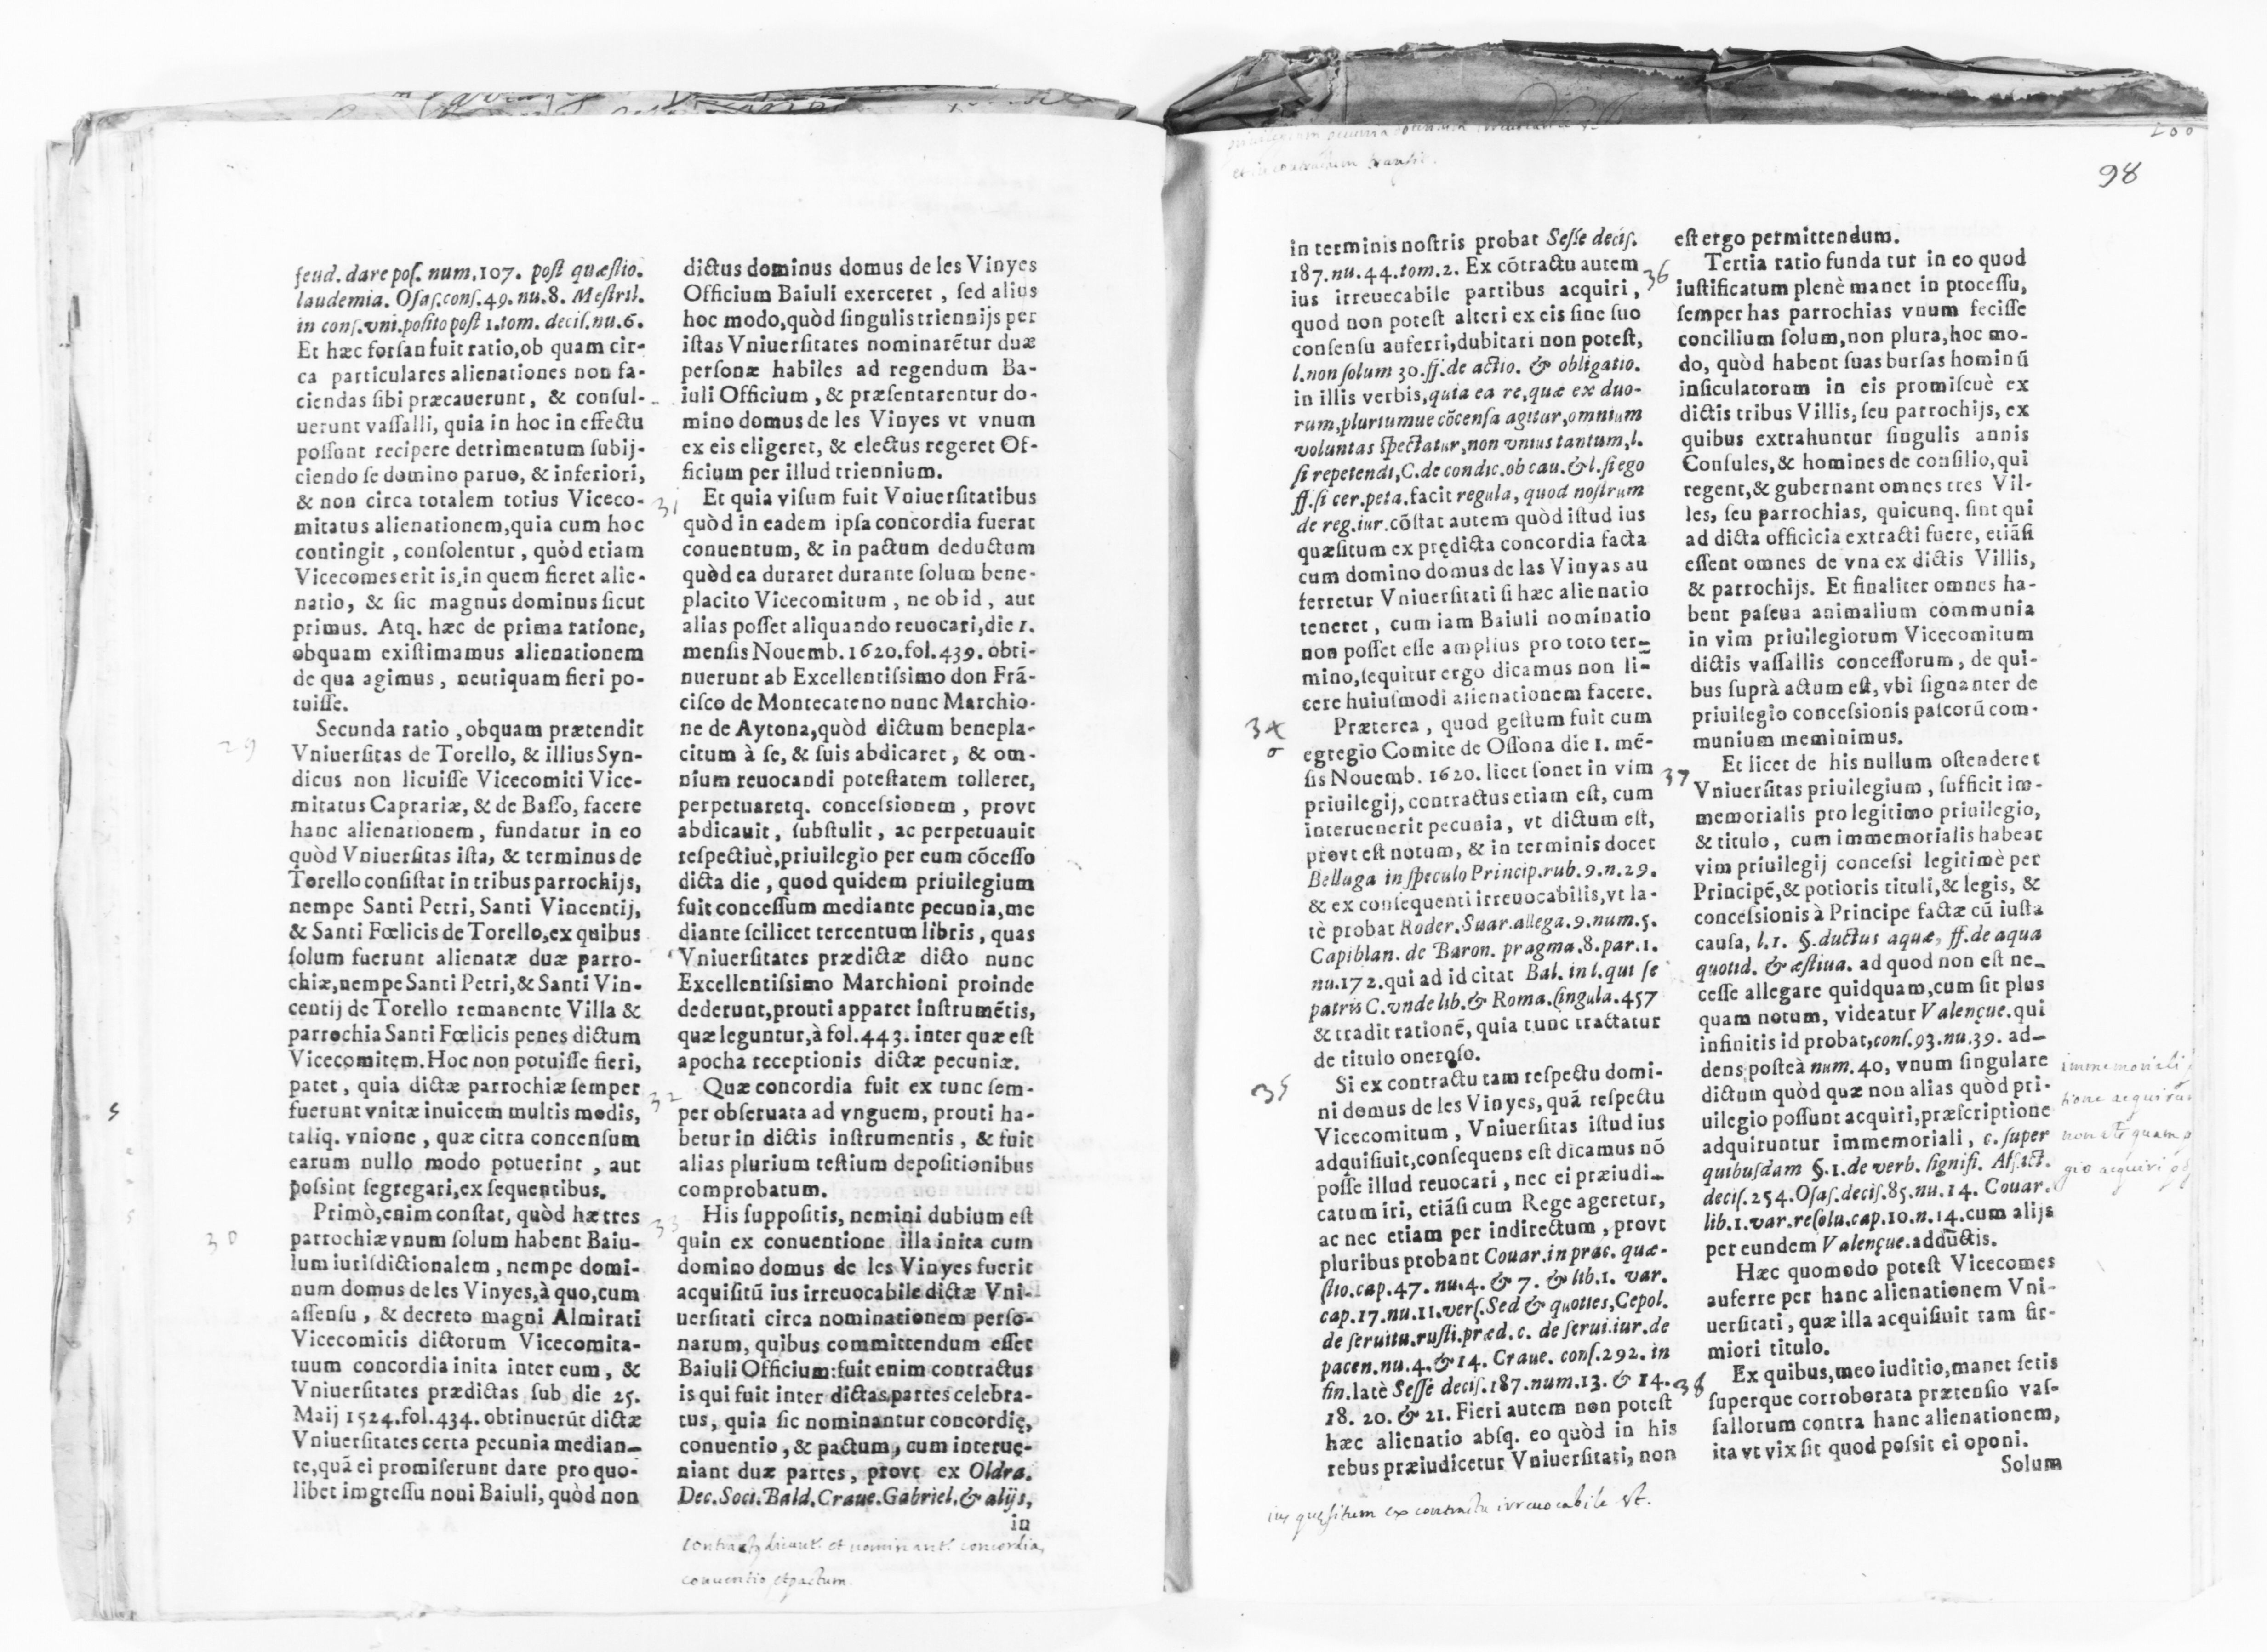 feud. dare pos. num.107. post quæstio.
laudemia. Osas.cons.49.nu.8. Mestril.
in cons.vni.posito post 1.tom. decis.nu.6.
Et hæc forsan fuit ratio,ob quam cir-
ca particulares alienationes non fa-
ciendas sibi præcauerunt, & consul-
uerunt vassalli, quia in hoc in effectu
possunt recipere detrimentum subij-
ciendo se domino paruo, & inferiori,
& non circa totalem totius Viceco-
mitatus alienationem,quia cum hoc
contingit , consolentur , quòd etiam
Vicecomes erit is,in quem fieret alie-
natio, & sic magnus dominus sicut
primus. Atq. hæc de prima ratione,
obquam existimamus alienationem
de qua agimus , neutiquam fieri po-
tuisse.
29
Secunda ratio ,obquam prætendit
Vniuersitas de Torello, & illius Syn-
dicus non licuisse Vicecomiti Vice-
mitatus Caprariæ, & de Basso, facere
hanc alienationem, fundatur in eo
quòd Vniuersitas ista, & terminus de
Torello consistat in tribus parrochijs,
nempe Santi Petri, Santi Vincentij,
& Santi Fœlicis de Torello,ex quibus
solum fuerunt alienatæ duæ parro-
chiæ,nempe Santi Petri,& Santi Vin-
centij de Torello remanente Villa &
parrochia Santi Fœlicis penes dictum
Vicecomitem. Hoc non potuisse fieri,
patet , quia dictæ parrochiæ semper
fuerunt vnitæ inuicem multis modis,
taliq. vnione , quæ citra concensum
earum nullo modo potuerint , aut
possint segregari,ex sequentibus.
30
Primò,enim constat, quòd hæ tres
parrochiæ vnum solum habent Baiu-
lum iurisdictionalem , nempe domi-
num domus de les Vinyes,à quo,cum
assensu , & decreto magni Almirati
Vicecomitis dictorum Vicecomita-
tuum concordia inita inter eum, &
Vniuersitates prædictas sub die 25.
Maij 1524.fol.434. obtinuerũt dictæ
Vniuersitates certa pecunia median-
te,quã ei promiserunt dare pro quo-
libet imgressu noui Baiuli, quòd non
dictus dominus domus de les Vinyes
Officium Baiuli exerceret , sed alius
hoc modo,quòd singulis triennijs per
istas Vniuersitates nominarẽtur duæ
personæ habiles ad regendum Ba-
iuli Officium , & præsentarentur do-
mino domus de les Vinyes vt vnum
ex eis eligeret, & electus regeret Of-
ficium per illud triennium.
31
Et quia visum fuit Vniuersitatibus
quòd in eadem ipsa concordia fuerat
conuentum, & in pactum deductum
quòd ea duraret durante solum bene-
placito Vicecomitum , ne ob id , aut
alias posset aliquando reuocari,die 1.
mensis Nouemb.1620.fol.439. obti-
nuerunt ab Excellentissimo don Frã-
cisco de Montecateno nunc Marchio-
ne de Aytona,quòd dictum benepla-
citum à se, & suis abdicaret , & om-
nium reuocandi potestatem tolleret,
perpetuaretq. concessionem , provt
abdicauit, substulit , ac perpetuauit
respectiuè,priuilegio per eum cõcesso
dicta die , quod quidem priuilegium
fuit concessum mediante pecunia,me
diante scilicet tercentum libris , quas
Vniuersitates prædictæ dicto nunc
Excellentissimo Marchioni proinde
dederunt,prouti apparet instrumẽtis,
quæ leguntur,à fol.443. inter quæ est
apocha receptionis dictæ pecuniæ.
32
Quæ concordia fuit ex tunc sem-
per obseruata ad vnguem, prouti ha-
betur in dictis instrumentis , & fuit
alias plurium testium depositionibus
comprobatum.
33
His suppositis, nemini dubium est
quin ex conuentione illa inita cum
domino domus de les Vinyes fuerit
acquisitũ ius irreuocabile dictæ Vni-
uersitati circa nominationem perso-
narum, quibus committendum esset
Baiuli Officium:fuit enim contractus
is qui fuit inter dictas partes celebra-
tus, quia sic nominantur concordię,
conuentio , & pactum, cum interuę-
niant duæ partes , provt ex Oldra.
Dec.Soci.Bald.Craue.Gabriel.& alijs,
in
et nominant. concordia,
conuentio et pactum.
98
in terminis nostris probat Sesse decis.
187.nu.44.tom.2. Ex cõtractu autem
ius irreuecabile partibus acquiri ,
quod non potest alteri ex eis sine suo
consensu auferri,dubitari non potest,
l.non solum 30.ff.de actio. & obligatio.
in illis verbis,quia ea re,quæ ex duo-
rum,pluriumue cõcensa agitur,omnium
voluntas spectatur,non vnius tantum,l.
si repetendi,C.de condic.ob cau.&l.si ego
ff.si cer.peta.facit regula, quod nostrum
de reg.iur.cõstat autem quòd istud ius
quæsitum ex prędicta concordia facta
cum domino domus de las Vinyas au
ferretur Vniuersitati si hæc alienatio
teneret , cum iam Baiuli nominatio
non posset esse amplius pro toto ter-
mino,sequitur ergo dicamus non li-
cere huiusmodi alienationem facere.
34
Præterea , quod gestum fuit cum
egregio Comite de Ossona die 1. mẽ-
sis Nouemb. 1620. licet sonet in vim
priuilegij, contractus etiam est, cum
interuenerit pecunia, vt dictum est,
provt est notum, & in terminis docet
Belluga in speculo Princip.rub.9.n.29.
& ex consequenti irreuocabilis,vt la-
tè probat Roder.Suar.allega.9.num.5.
Capiblan. de Baron. pragma.8.par.1.
nu.172.qui ad id citat Bal. in l.qui se
patris C.vnde lib.& Roma.singula.457
& tradit rationẽ, quia tunc tractatur
de titulo oneroso.
35
Si ex contractu tam respectu domi-
ni domus de les Vinyes, quã respectu
Vicecomitum , Vniuersitas istud ius
adquisiuit,consequens est dicamus nõ
posse illud reuocari , nec ei præiudi-
catum iri, etiãsi cum Rege ageretur,
ac nec etiam per indirectum , provt
pluribus probant Couar.in prac. quæ-
stio.cap.47. nu.4. & 7. & lib.1. var.
cap.17.nu.11.vers.Sed & quoties,Cepol.
de seruitu.rusti.præd.c. de serui.iur.de
pacen.nu.4.&14. Craue. cons.292. in
fin.latè Sesse decis.187.num.13. & 14.
18. 20. & 21. Fieri autem non potest
hæc alienatio absq. eo quòd in his
rebus præiudicetur Vniuersitati, non
ius quęsitum ex contractu irreuocabile
est ergo permittendum.
36
Tertia ratio funda tur in eo quod
iustificatum plenè manet in ptocessu,
semper has parrochias vnum fecisse
concilium solum,non plura,hoc mo-
do, quòd habent suas bursas hominũ
insiculatorum in eis promiscuè ex
dictis tribus Villis, seu parrochijs, ex
quibus extrahuntur singulis annis
Consules,& homines de consilio,qui
regent,& gubernant omnes tres Vil-
les, seu parrochias, quicunq. sint qui
ad dicta officicia extracti fuere, etiãsi
essent omnes de vna ex dictis Villis,
& parrochijs. Et finaliter omnes ha-
bent pascua animalium communia
in vim priuilegiorum Vicecomitum
dictis vassallis concessorum , de qui-
bus suprà actum est, vbi signanter de
priuilegio concessionis pascorũ com-
munium meminimus.
37
Et licet de his nullum ostenderet
Vniuersitas priuilegium , sufficit im-
memorialis pro legitimo priuilegio,
& titulo, cum immemorialis habeat
vim priuilegij concessi legitimè per
Principẽ,& potioris tituli,& legis, &
concessionis à Principe factæ cũ iusta
causa, l.1. §.ductus aquæ, ff.de aqua
quotid. & æstiua. ad quod non est ne-
cesse allegare quidquam,cum sit plus
quam notum, videatur Valençue.qui
infinitis id probat,cons.93.nu.39. ad-
dens posteà num.40, vnum singulare
dictum quòd quæ non alias quòd pri-
uilegio possunt acquiri,præscriptione
adquiruntur immemoriali , c. super
quibusdam §.1.de verb. signifi. Afflict.
decis.254.Osas.decis.85.nu.14. Couar.
lib.1.var.resolu.cap.10.n.14.cum alijs
per eundem Valençue.adductis.
Hæc quomodo potest Vicecomes
auferre per hanc alienationem Vni-
uersitati , quæ illa acquisiuit tam fir-
miori titulo.
38
Ex quibus,meo iuditio,manet setis
superque corroborata prætensio vas-
sallorum contra hanc alienationem,
ita vt vix sit quod possit ei oponi.
Solum